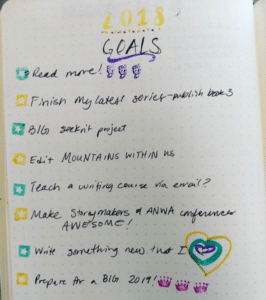 2018
GOALS
Read more!
Finish my latest series - publish book 3
BIG seekrit project
Edit MOUNTAINS WITHIN US
Teach a writing course via email?
Make Storymakers & ANWA conferences
AWESOME!
Write something new that I
Prepare for a BIG 2019!